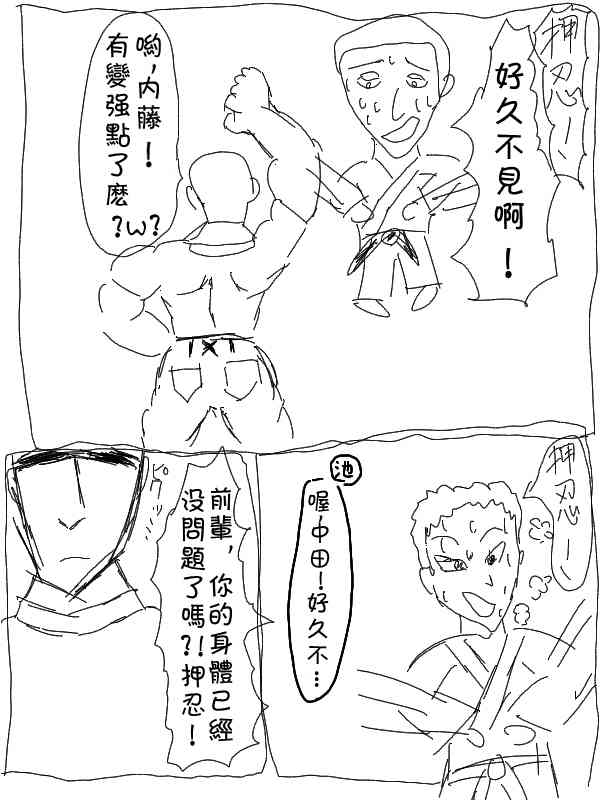 押忍!
好久不見啊!
喲,內藤!
有變强點了麽
?ω?
押忍!
池
喔中田!好久不…
前輩,你的身體已經
没問題了嗎?!押忍!